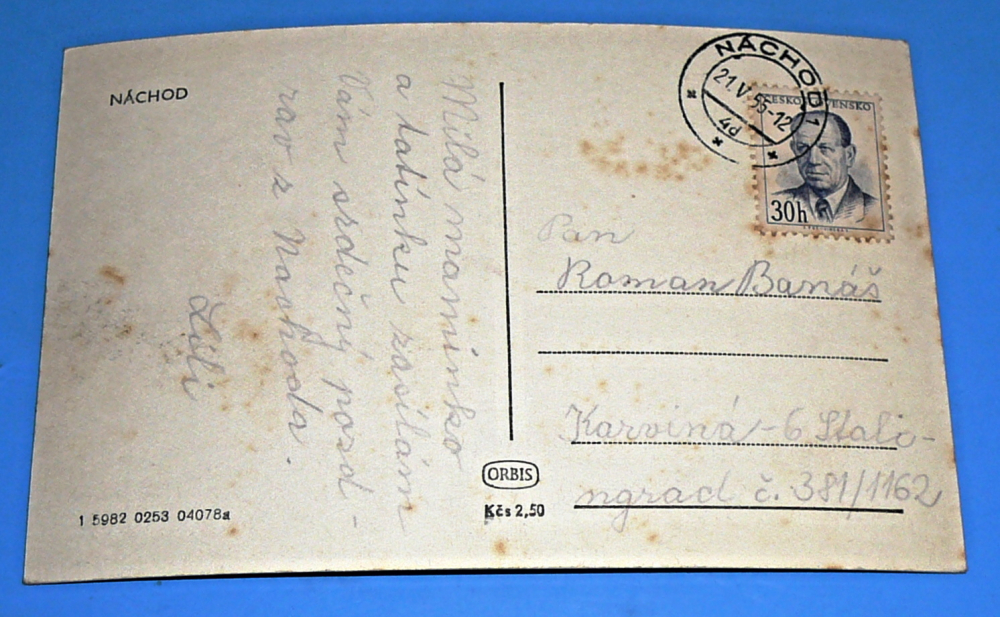 NÁCHOD
Milá maminko
a tatínku zasílám
Vám srdečný pozd-
rav z Nachoda.
Lidi
1 5982 0253 04078a
ORBIS
Kčs 2,50
NÁCHOD 1
21.V.55-12
4d
ČESKOSLOVENSKO
30h
Pan
Roman Banáš
Karviná-6 Stali-
ngrad č. 381/1162